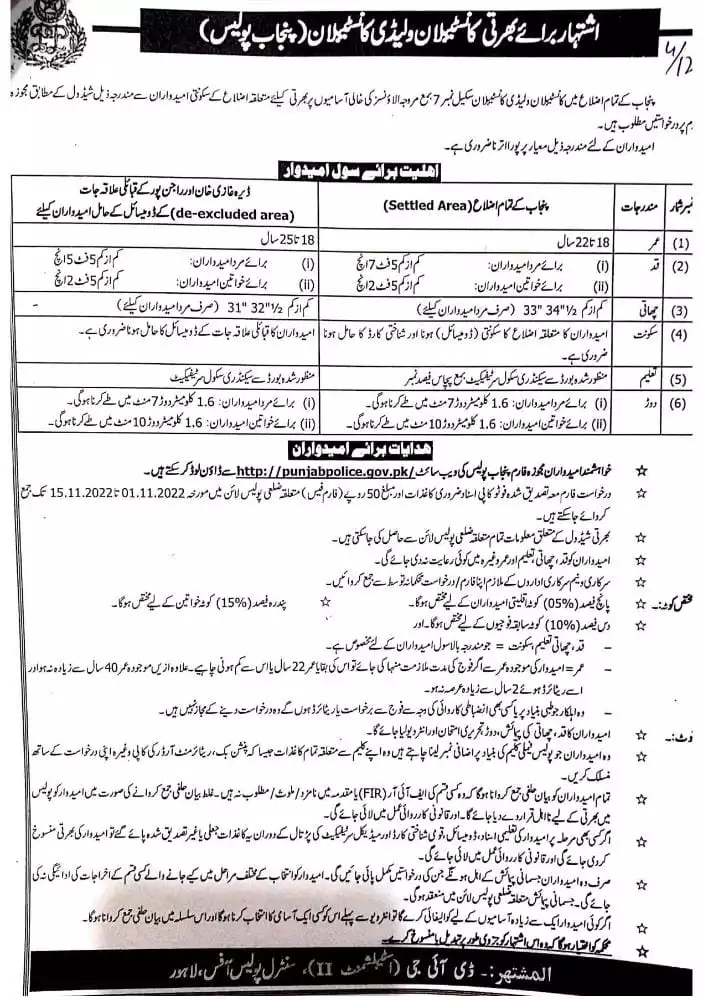 اشتہار برائے بھرتی کانسٹیبلان و لیڈی کانسٹیبلان (پنجاب پولیس)
4/12
پنجاب کے تمام اضلاع میں کانسٹیبلان و لیڈی کانسٹیبلان سکیل نمبر 7 بمع مروجہ الاؤنسز کی خالی آسامیوں پر بھرتی کیلئے متعلقہ اضلاع کے سکونتی امیدواران سے مندرجہ ذیل شیڈول کے مطابق مجوزہ
م پر درخواستیں مطلوب ہیں۔
امیدواران کے لئے مندرجہ ذیل معیار پر پورا اترنا ضروری ہے۔
اہلیت برائے سول امیدوار
نمبر شمار مندرجات پنجاب کے تمام اضلاع (Settled Area) ڈیرہ غازی خان اور راجن پور کے قبائلی علاقہ جات
(de-excluded area) کے ڈومیسائل کے حامل امیدواران کیلئے
(1) عمر 18 تا 22 سال 18 تا 25 سال
(2) قد (i) برائے مرد امیدواران: کم از کم 5 فٹ 7 انچ (i) برائے مرد امیدواران: کم از کم 5 فٹ 5 انچ
(ii) برائے خواتین امیدواران: کم از کم 5 فٹ 2 انچ (ii) برائے خواتین امیدواران: کم از کم 5 فٹ 2 انچ
(3) چھاتی کم از کم 33" 34½" (صرف مرد امیدواران کیلئے) کم از کم 31" 32½" (صرف مرد امیدواران کیلئے)
(4) سکونت امیدواران کا متعلقہ اضلاع کا سکونتی (ڈومیسائل) ہونا اور شناختی کارڈ کا حامل ہونا امیدواران کا قبائلی علاقہ جات کے ڈومیسائل کا حامل ہونا ضروری ہے۔
ضروری ہے۔
(5) تعلیم منظور شدہ بورڈ سے سیکنڈری سکول سرٹیفکیٹ بمع پچاس فیصد نمبر منظور شدہ بورڈ سے سیکنڈری سکول سرٹیفکیٹ
(6) دوڑ (i) برائے مرد امیدواران: 1.6 کلومیٹر دوڑ 7 منٹ میں طے کرنا ہوگی۔ (i) برائے مرد امیدواران: 1.6 کلومیٹر دوڑ 7 منٹ میں طے کرنا ہوگی۔
(ii) برائے خواتین امیدواران: 1.6 کلومیٹر دوڑ 10 منٹ میں طے کرنا ہوگی۔ (ii) برائے خواتین امیدواران: 1.6 کلومیٹر دوڑ 10 منٹ میں طے کرنا ہوگی۔
ہدایات برائے امیدواران
☆ خواہشمند امیدواران مجوزہ فارم پنجاب پولیس کی ویب سائٹ http://punjabpolice.gov.pk/ سے ڈاؤن لوڈ کر سکتے ہیں۔
☆ درخواست فارم معہ تصدیق شدہ فوٹو کاپی اسناد ضروری کاغذات اور مبلغ 50 روپے (فارم فیس) متعلقہ ضلعی پولیس لائن میں مورخہ 01.11.2022 تا 15.11.2022 تک جمع
کروائے جا سکتے ہیں۔
☆ بھرتی شیڈول کے متعلق معلومات تمام متعلقہ ضلعی پولیس لائن سے حاصل کی جا سکتی ہیں۔
☆ امیدواران کو قد، چھاتی تعلیم اور عمر وغیرہ میں کوئی رعایت نہ دی جائے گی۔
☆ سرکاری و نیم سرکاری اداروں کے ملازم اپنا فارم/درخواست محکمانہ توسط سے جمع کروائیں۔
مختص کوٹہ:۔ ☆ پانچ فیصد (05%) کوٹہ اقلیتی امیدواران کے لیے مختص ہوگا۔ ☆ پندرہ فیصد (15%) کوٹہ خواتین کے لیے مختص ہوگا۔
☆ دس فیصد (10%) کوٹہ سابقہ فوجیوں کے لیے مختص ہوگا۔ اور
– قد، چھاتی تعلیم، سکونت = جو مندرجہ بالا سول امیدواران کے لئے مخصوص ہے۔
– عمر = امیدوار کی موجودہ عمر سے اگر فوج کی مدت ملازمت منہا کی جائے تو اس کی بقایا عمر 22 سال یا اس سے کم ہونی چاہیے۔ علاوہ ازیں موجودہ عمر 40 سال سے زیادہ نہ ہو اور
اسے ریٹائرڈ ہوئے 2 سال سے زیادہ عرصہ نہ ہو۔
– وہ اہلکار جو طبی بنیاد پر یا کسی بھی انضباطی کارروائی کی وجہ سے فوج سے برخواست یا ریٹائرڈ ہوں گے وہ درخواست دینے کے مجاز نہیں ہیں۔
وٹ:۔ ☆ امیدواران کا قد، چھاتی کی پیمائش، دوڑ تحریری امتحان اور انٹرویو لیا جائے گا۔
☆ وہ امیدواران جو پولیس فیملی کلیم کی بنیاد پر اضافی نمبر لینا چاہتے ہیں وہ اپنے کلیم سے متعلقہ تمام کاغذات جیسا کہ پنشن بک، ریٹائرمنٹ آرڈر کی کاپی وغیرہ اپنی درخواست کے ساتھ
منسلک کریں۔
☆ تمام امیدواران کو بیان حلفی جمع کروانا ہوگا کہ وہ کسی قسم کی ایف آئی آر (FIR) یا مقدمہ میں نامزد/ملوث/مطلوب نہ ہیں۔ غلط بیان حلفی جمع کروانے کی صورت میں امیدوار کو پولیس
میں بھرتی کے لیے نااہل قرار دے دیا جائے گا۔ اور قانونی کارروائی عمل میں لائی جائے گی۔
☆ اگر کسی بھی مرحلہ پر امیدوار کی تعلیمی اسناد، ڈومیسائل، قومی شناختی کارڈ اور میڈیکل سرٹیفکیٹ کی پڑتال کے دوران یہ کاغذات جعلی یا غیر تصدیق شدہ پائے گئے تو امیدوار کی بھرتی منسوخ
کر دی جائے گی اور قانونی کارروائی عمل میں لائی جائے گی۔
☆ صرف وہ امیدواران جسمانی پیمائش کے اہل ہونگے جن کی درخواستیں مکمل پائی جائیں گی۔ امیدوار کو انتخاب کے مختلف مراحل میں کیے جانے والے کسی قسم کے اخراجات کی ادائیگی نہ کی
جائے گی۔ جسمانی پیمائش متعلقہ ضلعی پولیس لائن میں منعقد ہوگی۔
☆ اگر کوئی امیدوار ایک سے زیادہ آسامیوں کے لیے کوالیفائی کرے گا تو انٹرویو سے پہلے اس کو کسی ایک آسامی کا انتخاب کرنا ہوگا اور اس سلسلہ میں بیان حلفی جمع کروانا ہوگا۔
☆ محکمہ کو اختیار ہوگا کہ وہ اس اشتہار کو جزوی طور پر تبدیل یا منسوخ کرے۔
المشتہر:۔ ڈی آئی جی (اسٹیبلشمنٹ II)، سنٹرل پولیس آفس، لاہور